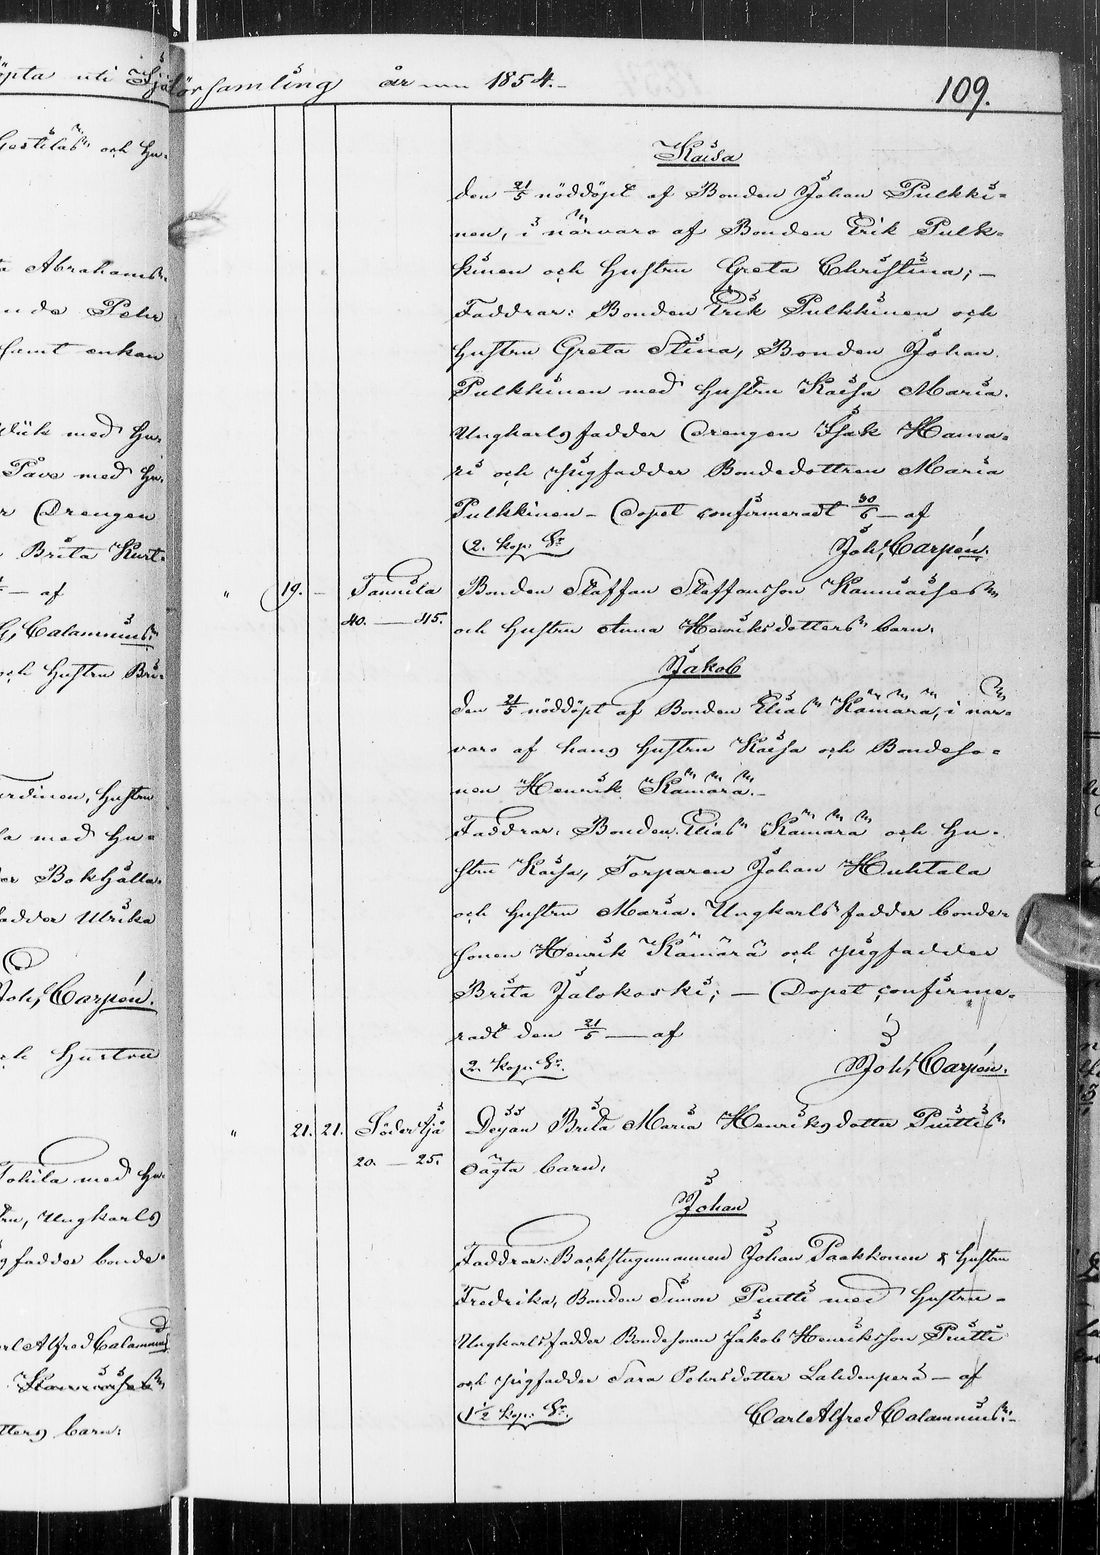 öpta uti Själ
örsamling år 1854.
109.
Gestilas och Hu-
Kaisa
den 21/5 nöddöpt af Bonden Johan Pulkki-
nen, i närvaro af Bonden Erik Pulk-
kinen och hustru Greta Christina; —
Faddrar: Bonden Erik Pulkkinen och
hustru Greta Stina, Bonden Johan
Pulkkinen med hustru Kaisa Maria.
Ungkarlsfadder Drengen Isak Hama-
ri och pigfadder Bondedottren Maria
Pulkkinen — Dopet confirmeradt 30/6 — af
2. kop. Sr. Joh. Carpén.
" 19. — Tannila Bonden Staffan Staffansson Kanniaises
40. — 45. och hustru Anna Henriksdotters barn.
Jakob
den 21/5 nöddöpt af Bonden Elias Kämärä, i när-
varo af hans hustru Kaisa och Bondeso-
nen Henrik Kämärä.—
Faddrar: Bonden Elias Kämärä och hu-
stru Kaisa, Torparen Johan Huhtala
och hustru Maria. Ungkarlsfadder bonde-
sonen Henrik Kämärä och pigfadder
Brita Jalokoski; — Dopet confirme-
radt den 21/5 — af
2. kop. Sr. Joh. Carpén.
" 21. 21. Södersjä Dejan Brita Maria Henriksdotter Piuttis
20. — 25. oägta barn.
Johan
Faddrar: Backstugumannen Johan Paakkonen & hustru
Fredrika, Bonden Simon Piutti med hustru —
Ungkarlsfadder Bondesonen Jakob Henriksson Piutti
och pigfadder Sara Pehrsdotter Lahdenperä — af
1 1/2 kop. Sr. Carl Alfred Calamnius.
ta Abrahams-
Pehr
samt enkan
med Hu-
Pave med Hu-
r Drengen
Brita Kurt-
— af
Calamnius.
och hustru Bri-
hustru
la med Hu-
Bokhålla-
fadder Ulrika
Joh. Carpén.
ch hustru
Tohila med Hu-
tru, Ungkarls
gfadder bonde-
rl Alfred Calamnius
tters barn.